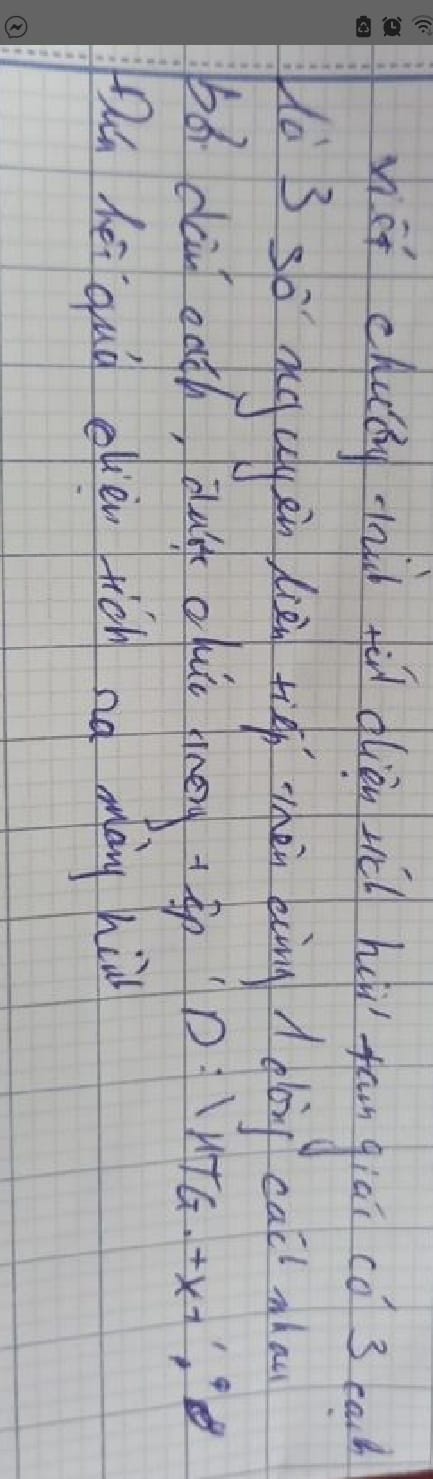 viết chương trình tính diện tích hình tam giác có 3 cạnh
là 3 số nguyên liên tiếp trên cùng 1 dòng cách nhau
bởi dấu cách, được chứa trong tệp 'D:\HTG.txt',
Đưa kết quả diện tích ra màn hình